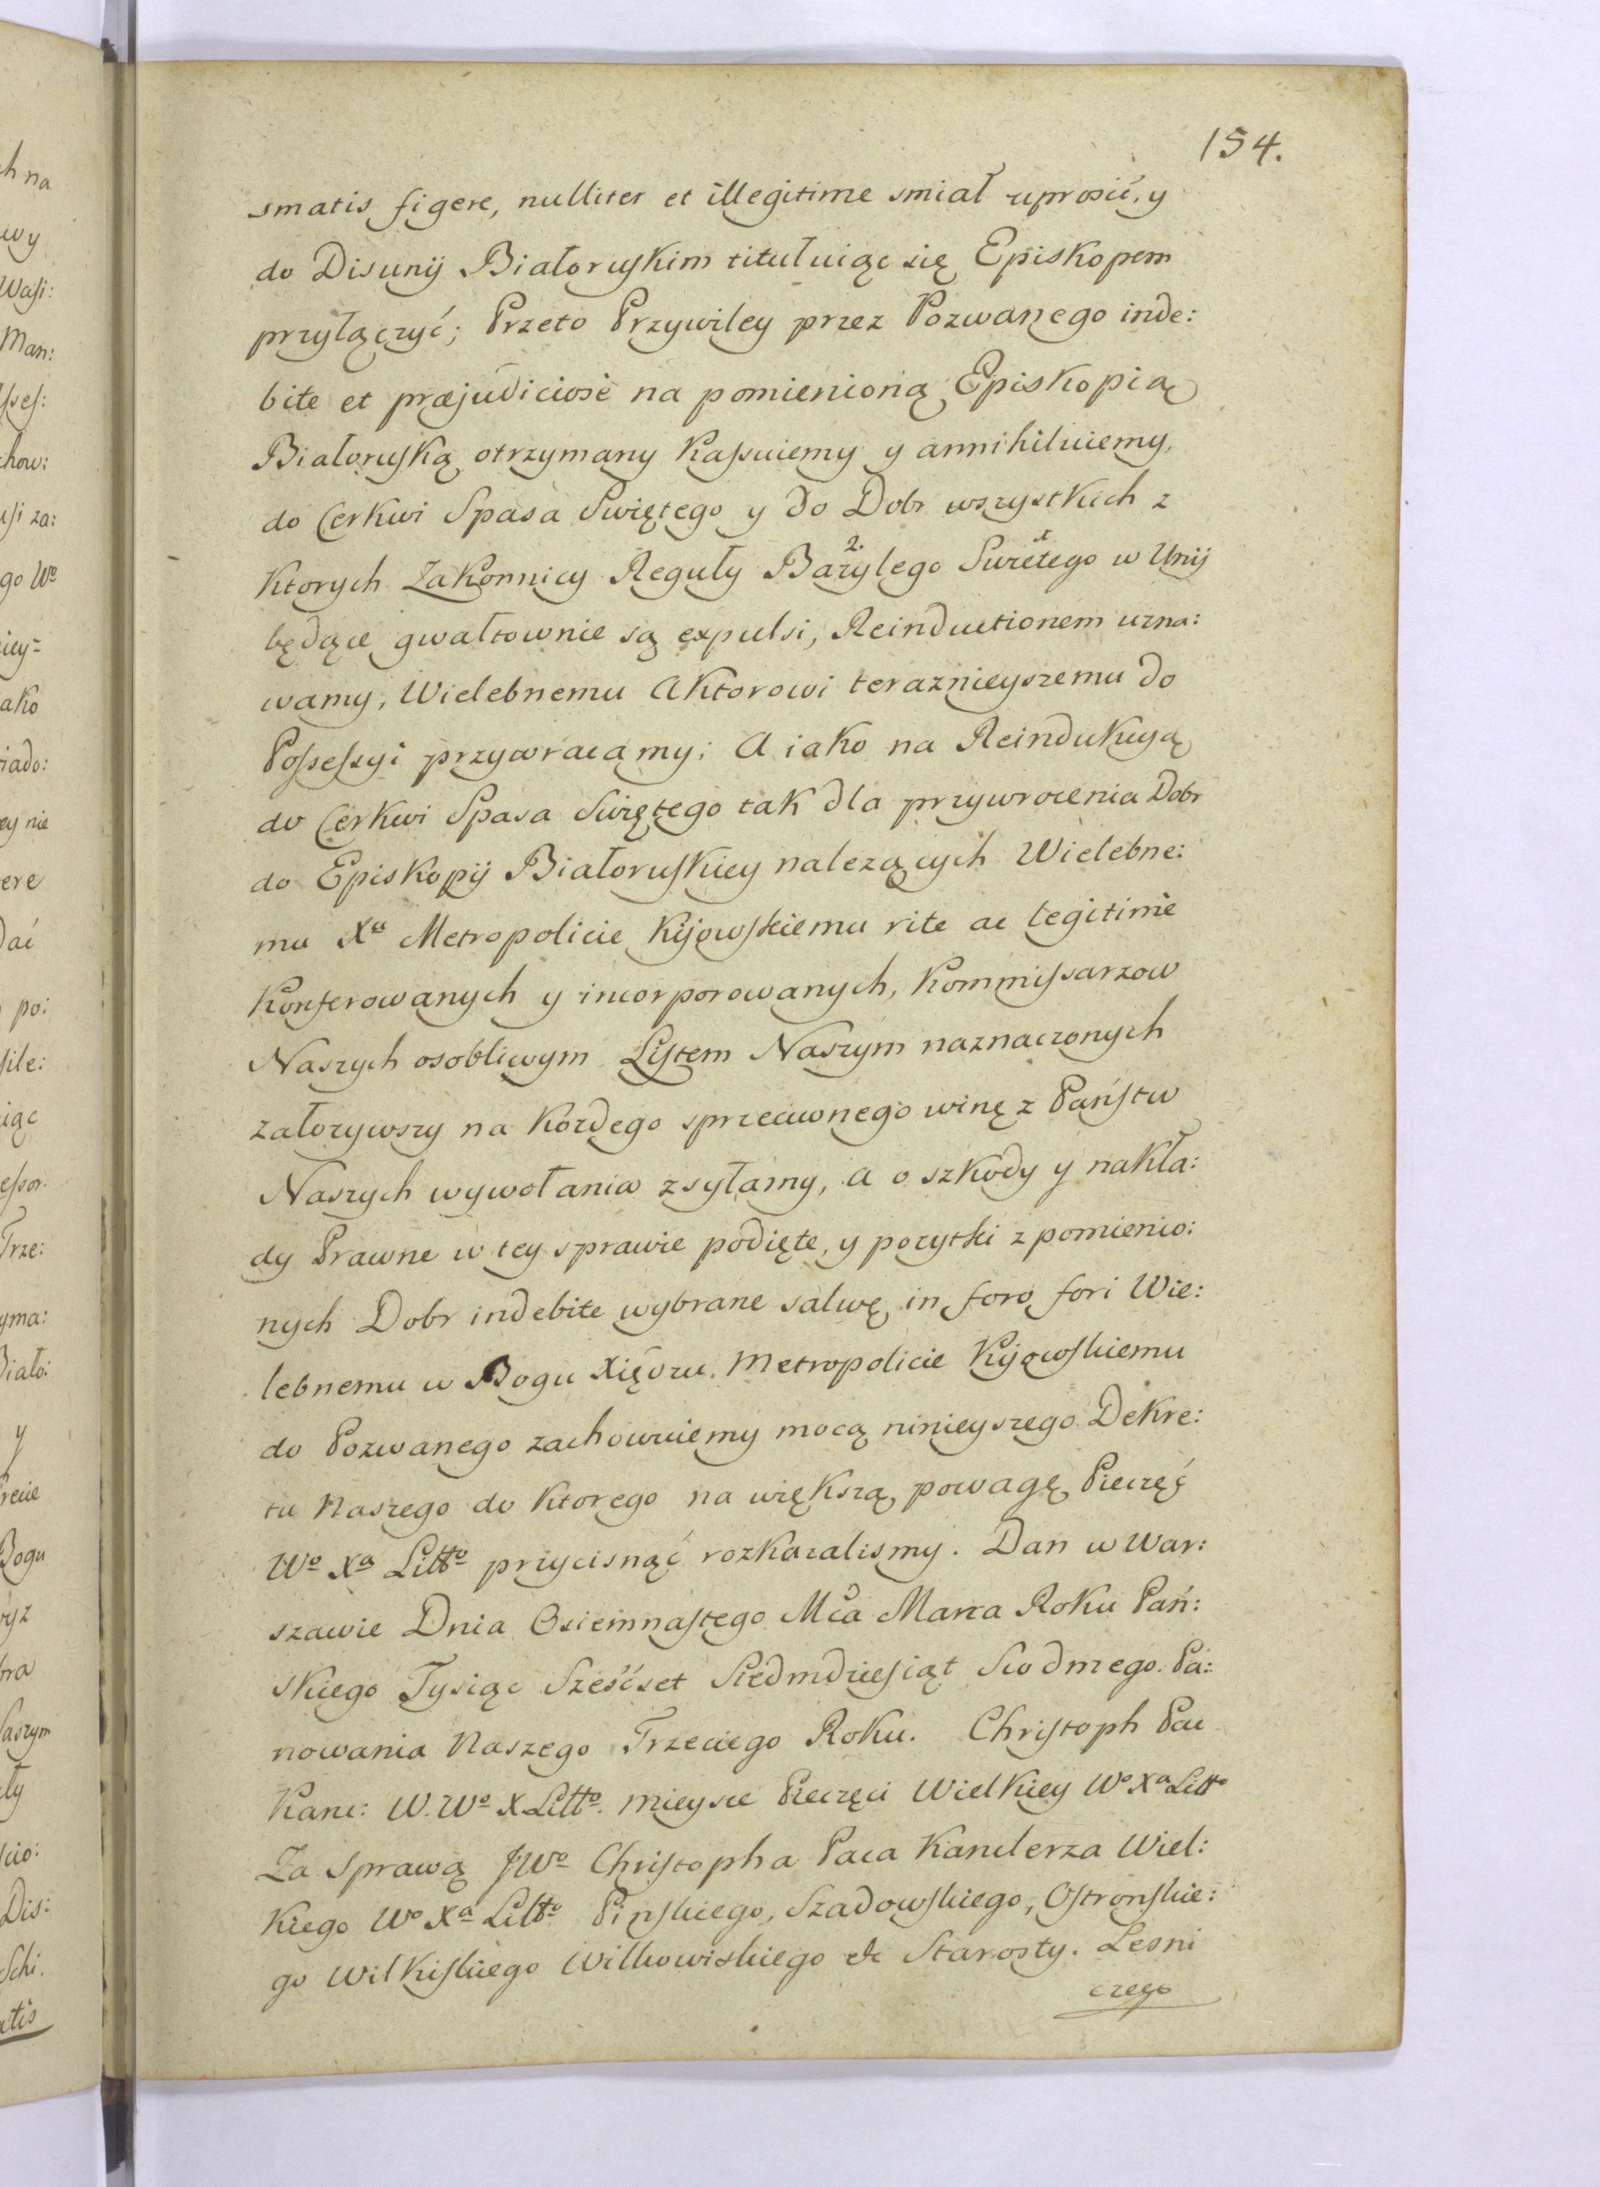 154.
smatis figere, nulliter et illegitime smiał uprosić, y
do Disunij Białoruskim titułuiąc się Episkopem
przyłączyć; Przeto Przywiley przez Pozwanego inde:
bite et præjudiciose na pomienioną Episkopią
Białoruską otrzymany Kassuiemy y annihiluiemy,
do Cerkwi Spasa Swiętego y do Dobr wszystkich z
Ktorych Zakonnicy Reguły Bazylego Swietego w Unij
będące gwałtownie są expulsi, Reinductionem uzna:
wamy, Wielebnemu Aktorowi teraznieyszemu do
Possessyi przywracamy; A iako na Reindukcyą
do Cerkwi Spasa Swiętego tak dla przywrocenia Dobr
do Episkopij Białoruskiey nalezących Wielebne:
mu Xa Metropolicie Kijowskiemu rite ac legitime
Konferowanych y incorporowanych, Kommissarzow
Naszych osobliwym Lystem Naszym naznaczonych
załozywszy na Kozdego sprzeciwnego winę z Państw
Naszych wywołania zsyłamy, a o szkody y nakła:
dy Prawne w tey sprawie podięte, y pozytki z pomienio:
nych Dobr indebite wybrane salwę in foro fori Wie:
lebnemu w Bogu Xiędzu Metropolicie Kijowskiemu
do Pozwanego zachowuiemy mocą ninieyszego Dekre:
tu Naszego do Ktorego na większą powagę Pieczęć
Wo Xa Litto przycisnąć rozkazalismy. Dan w War:
szawie Dnia Osiemnastego Mca Marca Roku Pań:
skiego Tysiąc Sześćset Siedmdziesiąt Siodmego. Pa:
nowania Naszego Trzeciego Roku. Christoph Pac
Kanc: W. Wo X Litto. mieysce Pieczęci Wielkiey Wo Xa Litto
Za Sprawą JWo Christopha Paca Kanclerza Wiel:
Kiego Wo Xa Litto Pinskiego, Szadowskiego, Ostronskie:
go Wilkiskiego Wilkowiskiego &c Starosty. Lesni
czego